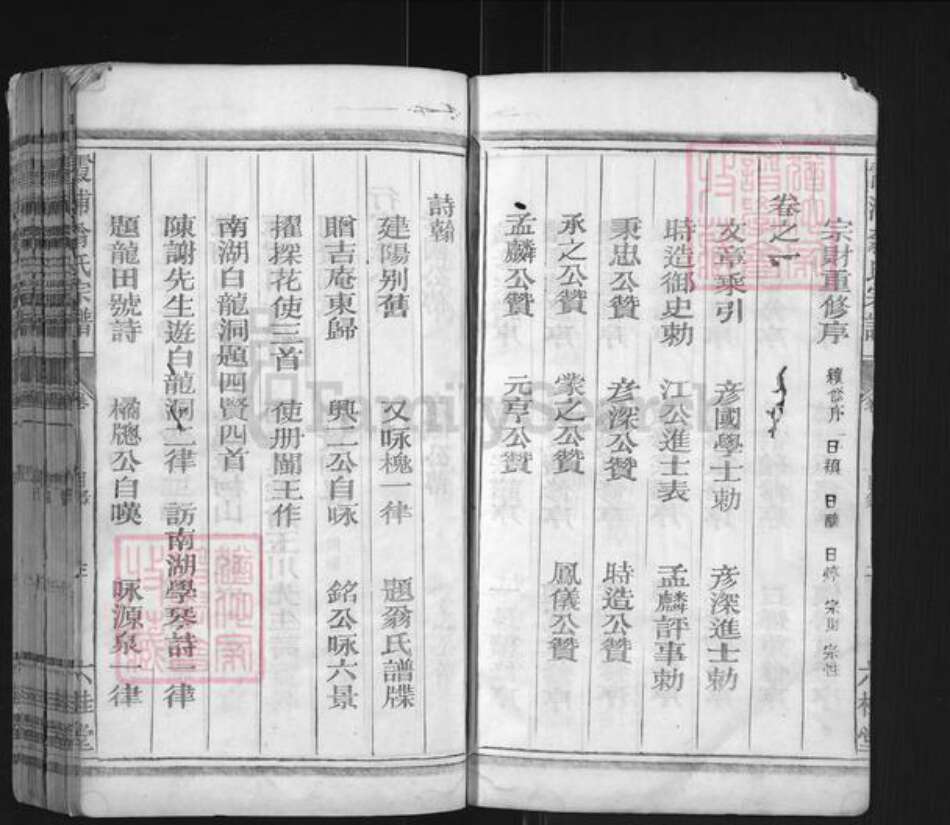 宗財重修序
卷之一
文章乘引 彦國學士勅 彦深進士勅
時造御史勅 江公進士表 孟麟評事勅
秉忠公贊 彦深公贊 時造公贊
永之公贊 棠之公贊 鳳儀公贊
孟麟公贊 元亨公贊
詩翰
建陽別舊 又咏槐一律 題翁氏譜牒
贈吉庵東歸 興二公自咏 銘公咏六景
擢探花使三首 使册閩王作
南湖白龍洞題四賢四首
陳謝先生遊白龍洞二律 訪南湖學琴詩一律
題龍田號詩 橘牕公自嘆 咏源泉一律
六桂堂
FamilySearch